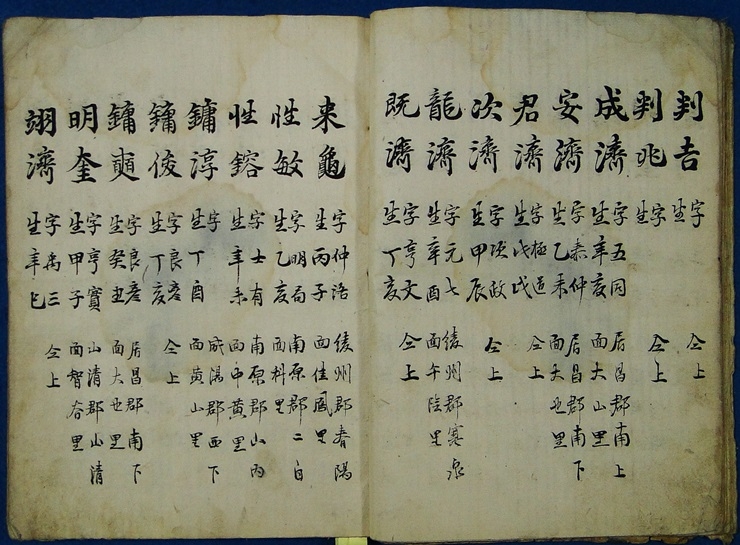 判吉 字 生 仝上
判兆 字 生 仝上
成濟 字五同 生辛亥 居昌郡南上面大山里
安濟 字泰仲 生乙未 居昌郡南下面大也里
君濟 字極道 生戊戌 仝上
次濟 字次故 生甲辰 仝上
龍濟 字元七 生辛酉 綾州郡寒泉面午陰里
旣濟 字亨文 生丁亥 仝上
来龜 字仲洛 生丙子 綾州郡春陽面佳鳳里
性敏 字明局 生乙亥 南原郡二白面科里
性鎔 字士有 生辛未 南原郡山內面中黃里
鏞淳 字 生丁酉 咸陽郡西下面黃山里
鏞俊 字良彦 生丁亥 仝上
鏞奭 字良彦 生癸丑 居昌郡南下面大也里
明奎 字亨寶 生甲子 山清郡山清面智谷里
翊濟 字禹三 生辛巳 仝上